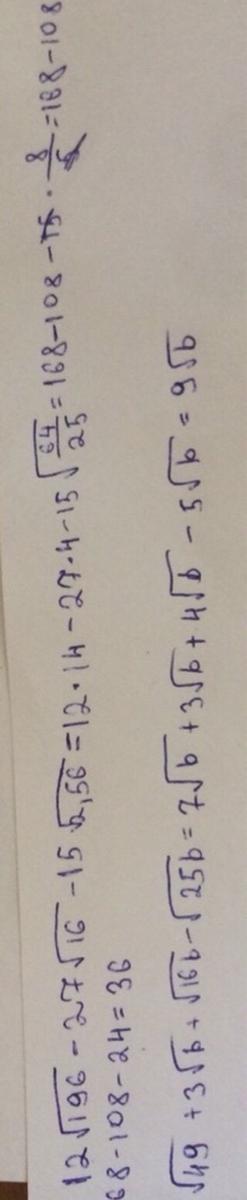 12√196 - 27√16 - 15√2,56 = 12·14 - 27·4 - 15√64/25 = 168-108 - 15 · 8/5 = 168-108
68-108-24=36
√49 + 3√b + √16b - √25b = 7√b + 3√b + 4√b - 5√b = 9√b